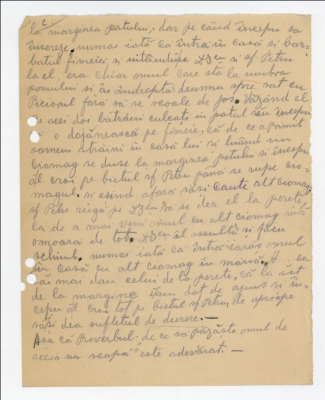 2
la marginea patului, dar pe când începu sa
însereze, numa iată că intra în casă și bar-
batul femeiei, și uitându-se Dzeu si sf Petru
la el, era chiar omul care sta la umbra
pomului si as îndreptă drumu spre sat cu
Piciorul fară să se scoale de jos. Văzând el
cu acei doi bătrâni culcați in patul seu începu
o dojănească pe femeie, că de ce a primit
oameni străini în casă lui si luând un
Ciomag se duse la marginea patului si începu
al croi pe bietul sf Petru pană se rupse cio-
magul, si esind afară săsi caute alt ciomag
sf Petre rugă pe Dzeu să se dea el la perete
la de a mai veni omul cu alt ciomag mă
omoară de tot, Dzeu îl ascultă si făcu
schimb, numai iată că intră iarăs omul
în casă cu alt ciomag în mână,
ai mai dau celui de la perete, că la ast
de la margine iam dat de ajuns si în-
cepu al croi tot pe bietul sf Petru, de aproape
să-si dea sufletul de durere. —
Asa că Proverbul: de ce să păzăște omul de
aceia nu scapă" este adevărat. —